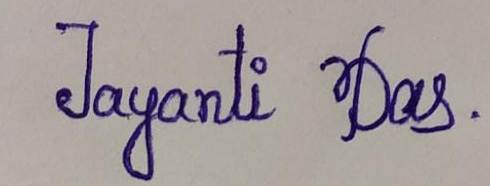 Jayanti Das.